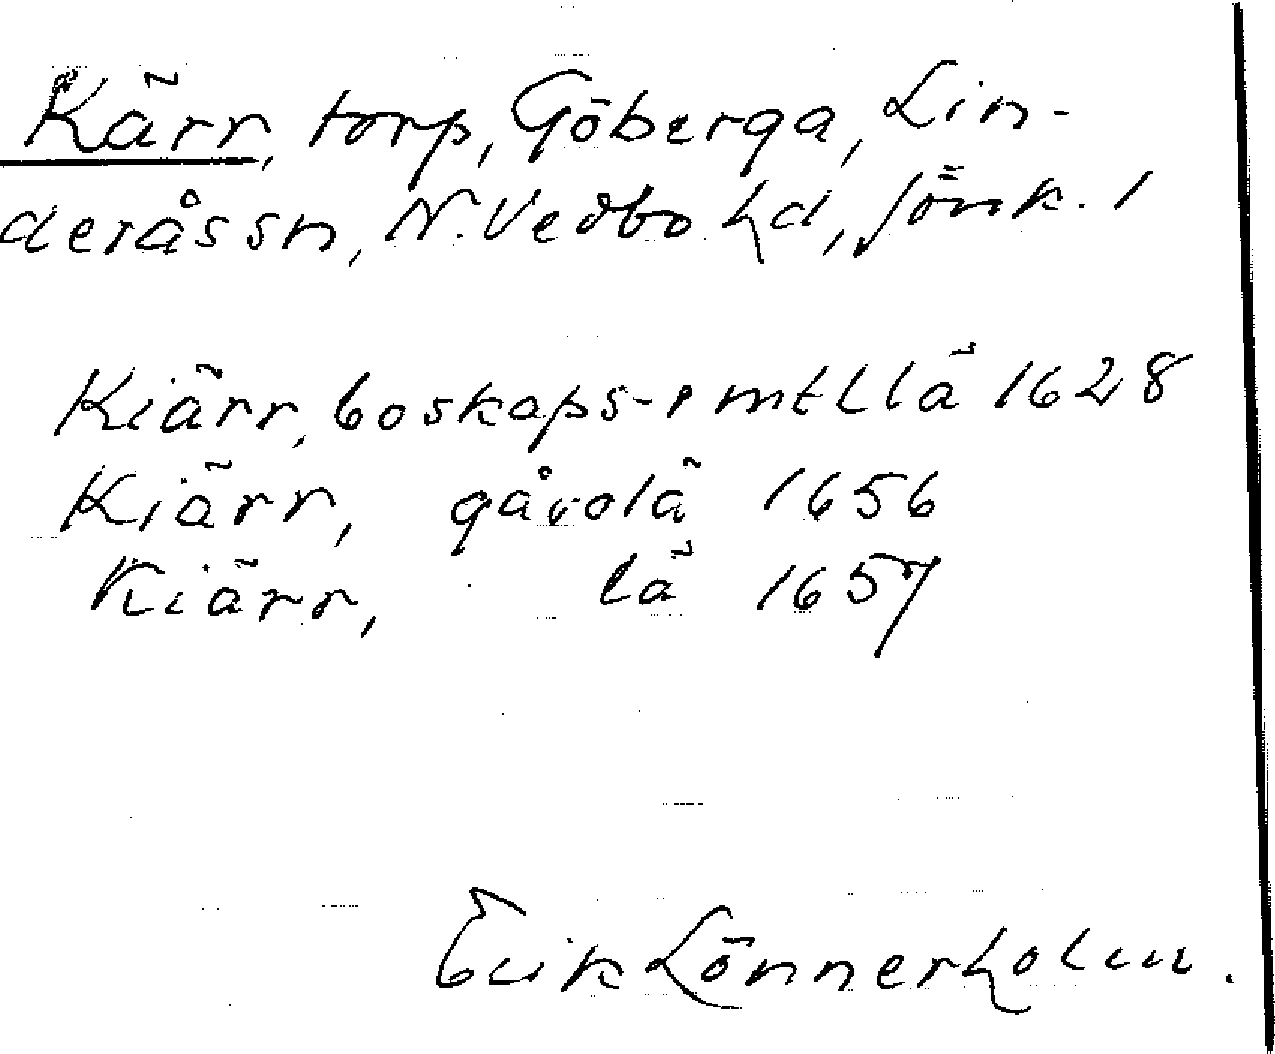 Kärr, torp, Göberga, Lin-
deråssn, N. Vedbo hd, Jönk. l
Kiärr, boskaps- o mtllä 1628
Kiärr, gåvolä 1656
Kiärr, lä 1657
Erik Lönnerholm.